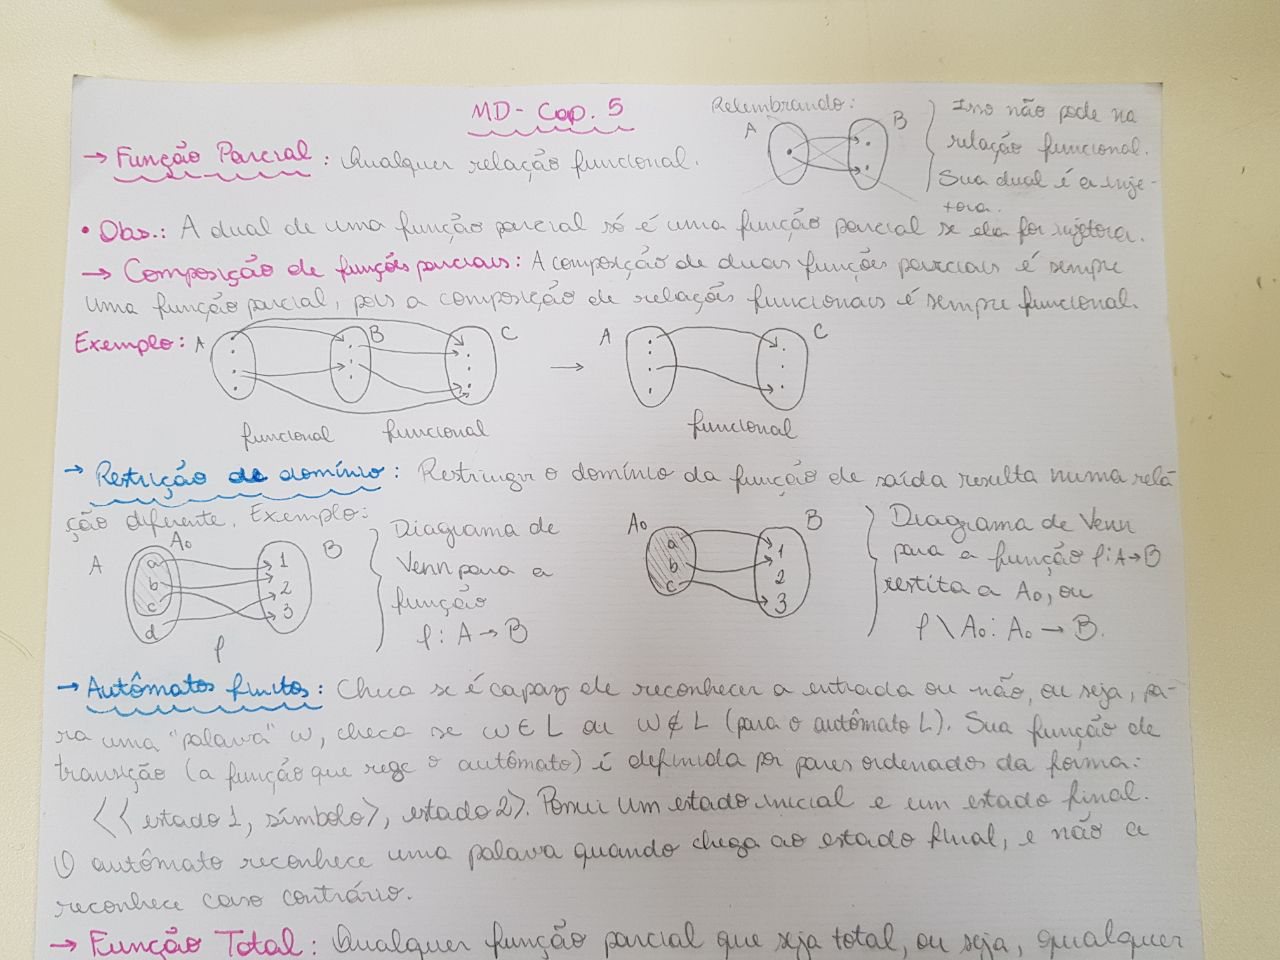 MD - Cap. 5
Relembrando:
A
B
Isso não pode na
relação funcional.
Sua dual é a inje-
tora.
→ Função Parcial: Qualquer relação funcional.
• Obs.: A dual de uma função parcial só é uma função parcial se ela for injetora.
→ Composição de funções parciais: A composição de duas funções parciais é sempre
uma função parcial, pois a composição de relações funcionais é sempre funcional.
Exemplo: A B C → A C
funcional funcional funcional
→ Restrição de domínio: Restringir o domínio da função de saída resulta numa rela
ção diferente. Exemplo:
A
A₀
a
b
c
d
1
2
3
B
f
Diagrama de
Venn para a
função
f: A → B
A₀
a
b
c
B
1
2
3
Diagrama de Venn
para a função f: A→B
restita a A₀, ou
f \ A₀: A₀ → B.
→ Autômatos finitos: Checa se é capaz de reconhecer a entrada ou não, ou seja, pa-
ra uma "palava" w, checa se w ∈ L ou w ∉ L (para o autômato L). Sua função de
transição (a função que rege o autômato) é definida por pares ordenados da forma:
⟨⟨estado 1, símbolo⟩, estado 2⟩. Possui um estado inicial e um estado final.
O autômato reconhece uma palava quando chega ao estado final, e não a
reconhece caso contrário.
→ Função Total: Qualquer função parcial que seja total, ou seja, qualquer